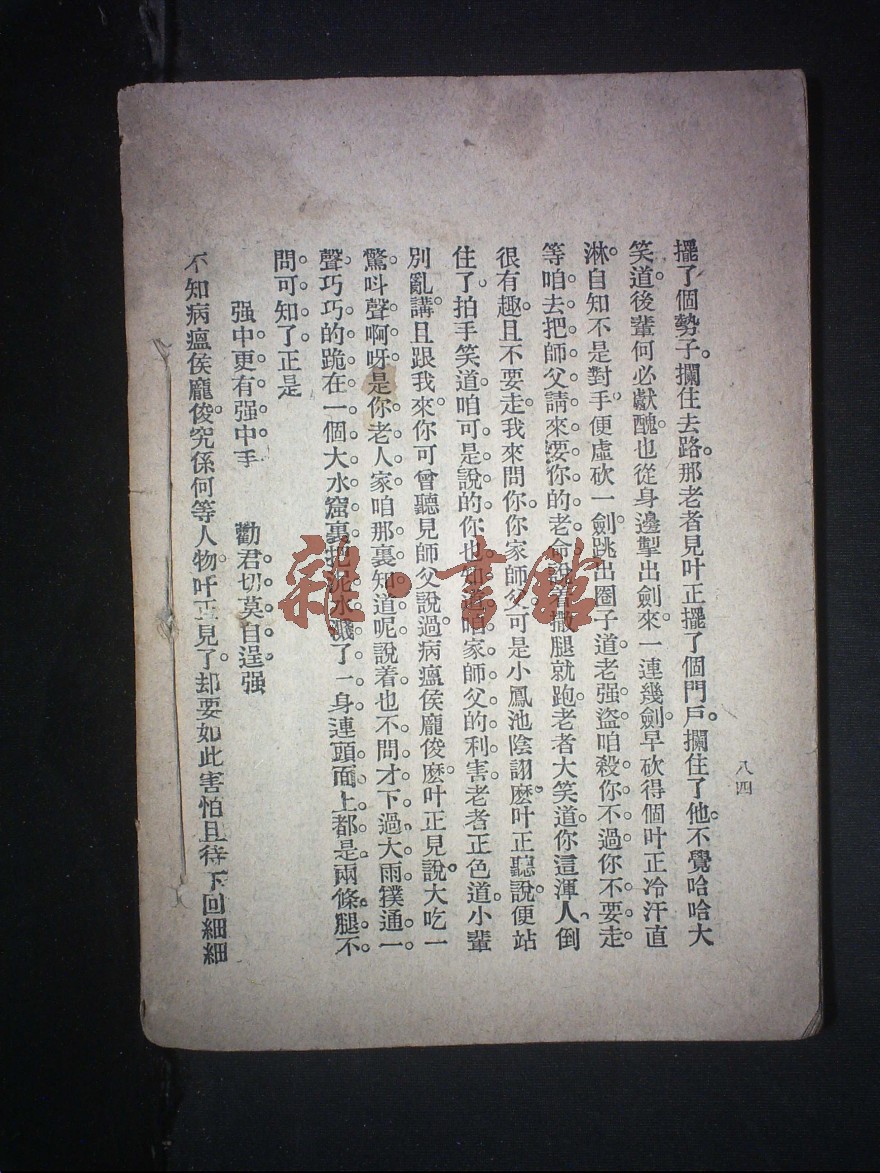 八四
擺了個勢子。攔住去路。那老者見叶正擺了個門戶。攔住了他。不覺哈哈大
笑道。後輩何必獻醜。也從身邊掣出劍來。一連幾劍。早砍得個叶正冷汗直
淋。自知不是對手。便虛砍一劍。跳出圈子道。老强盜。咱殺你不過。你不要走。
等咱去把師父請來。要你的老命。說着撒腿就跑。老者大笑道。你這渾人。倒
很有趣。且不要走。我來問你。你家師父可是小鳳池陰詡麽。叶正聽說。便站
住了。拍手笑道。咱可是說的。你也知道咱家師父的利害。老者正色道。小輩
別亂講。且跟我來。你可曾聽見師父說過病瘟侯龐俊麽。叶正見說。大吃一
驚。呌聲啊呀。是你老人家。咱那裏知道呢。說着也不問才下過大雨。㯷通一
聲。巧巧的跪在一個大水窟裏。把泥水濺了一身。連頭面上都是。兩條腿不
問可知了。正是
强中更有强中手。 勸君切莫自逞强
不知病瘟侯龐俊。究係何等人物。叶正見了。却要如此害怕。且待下回細細
雜·書館